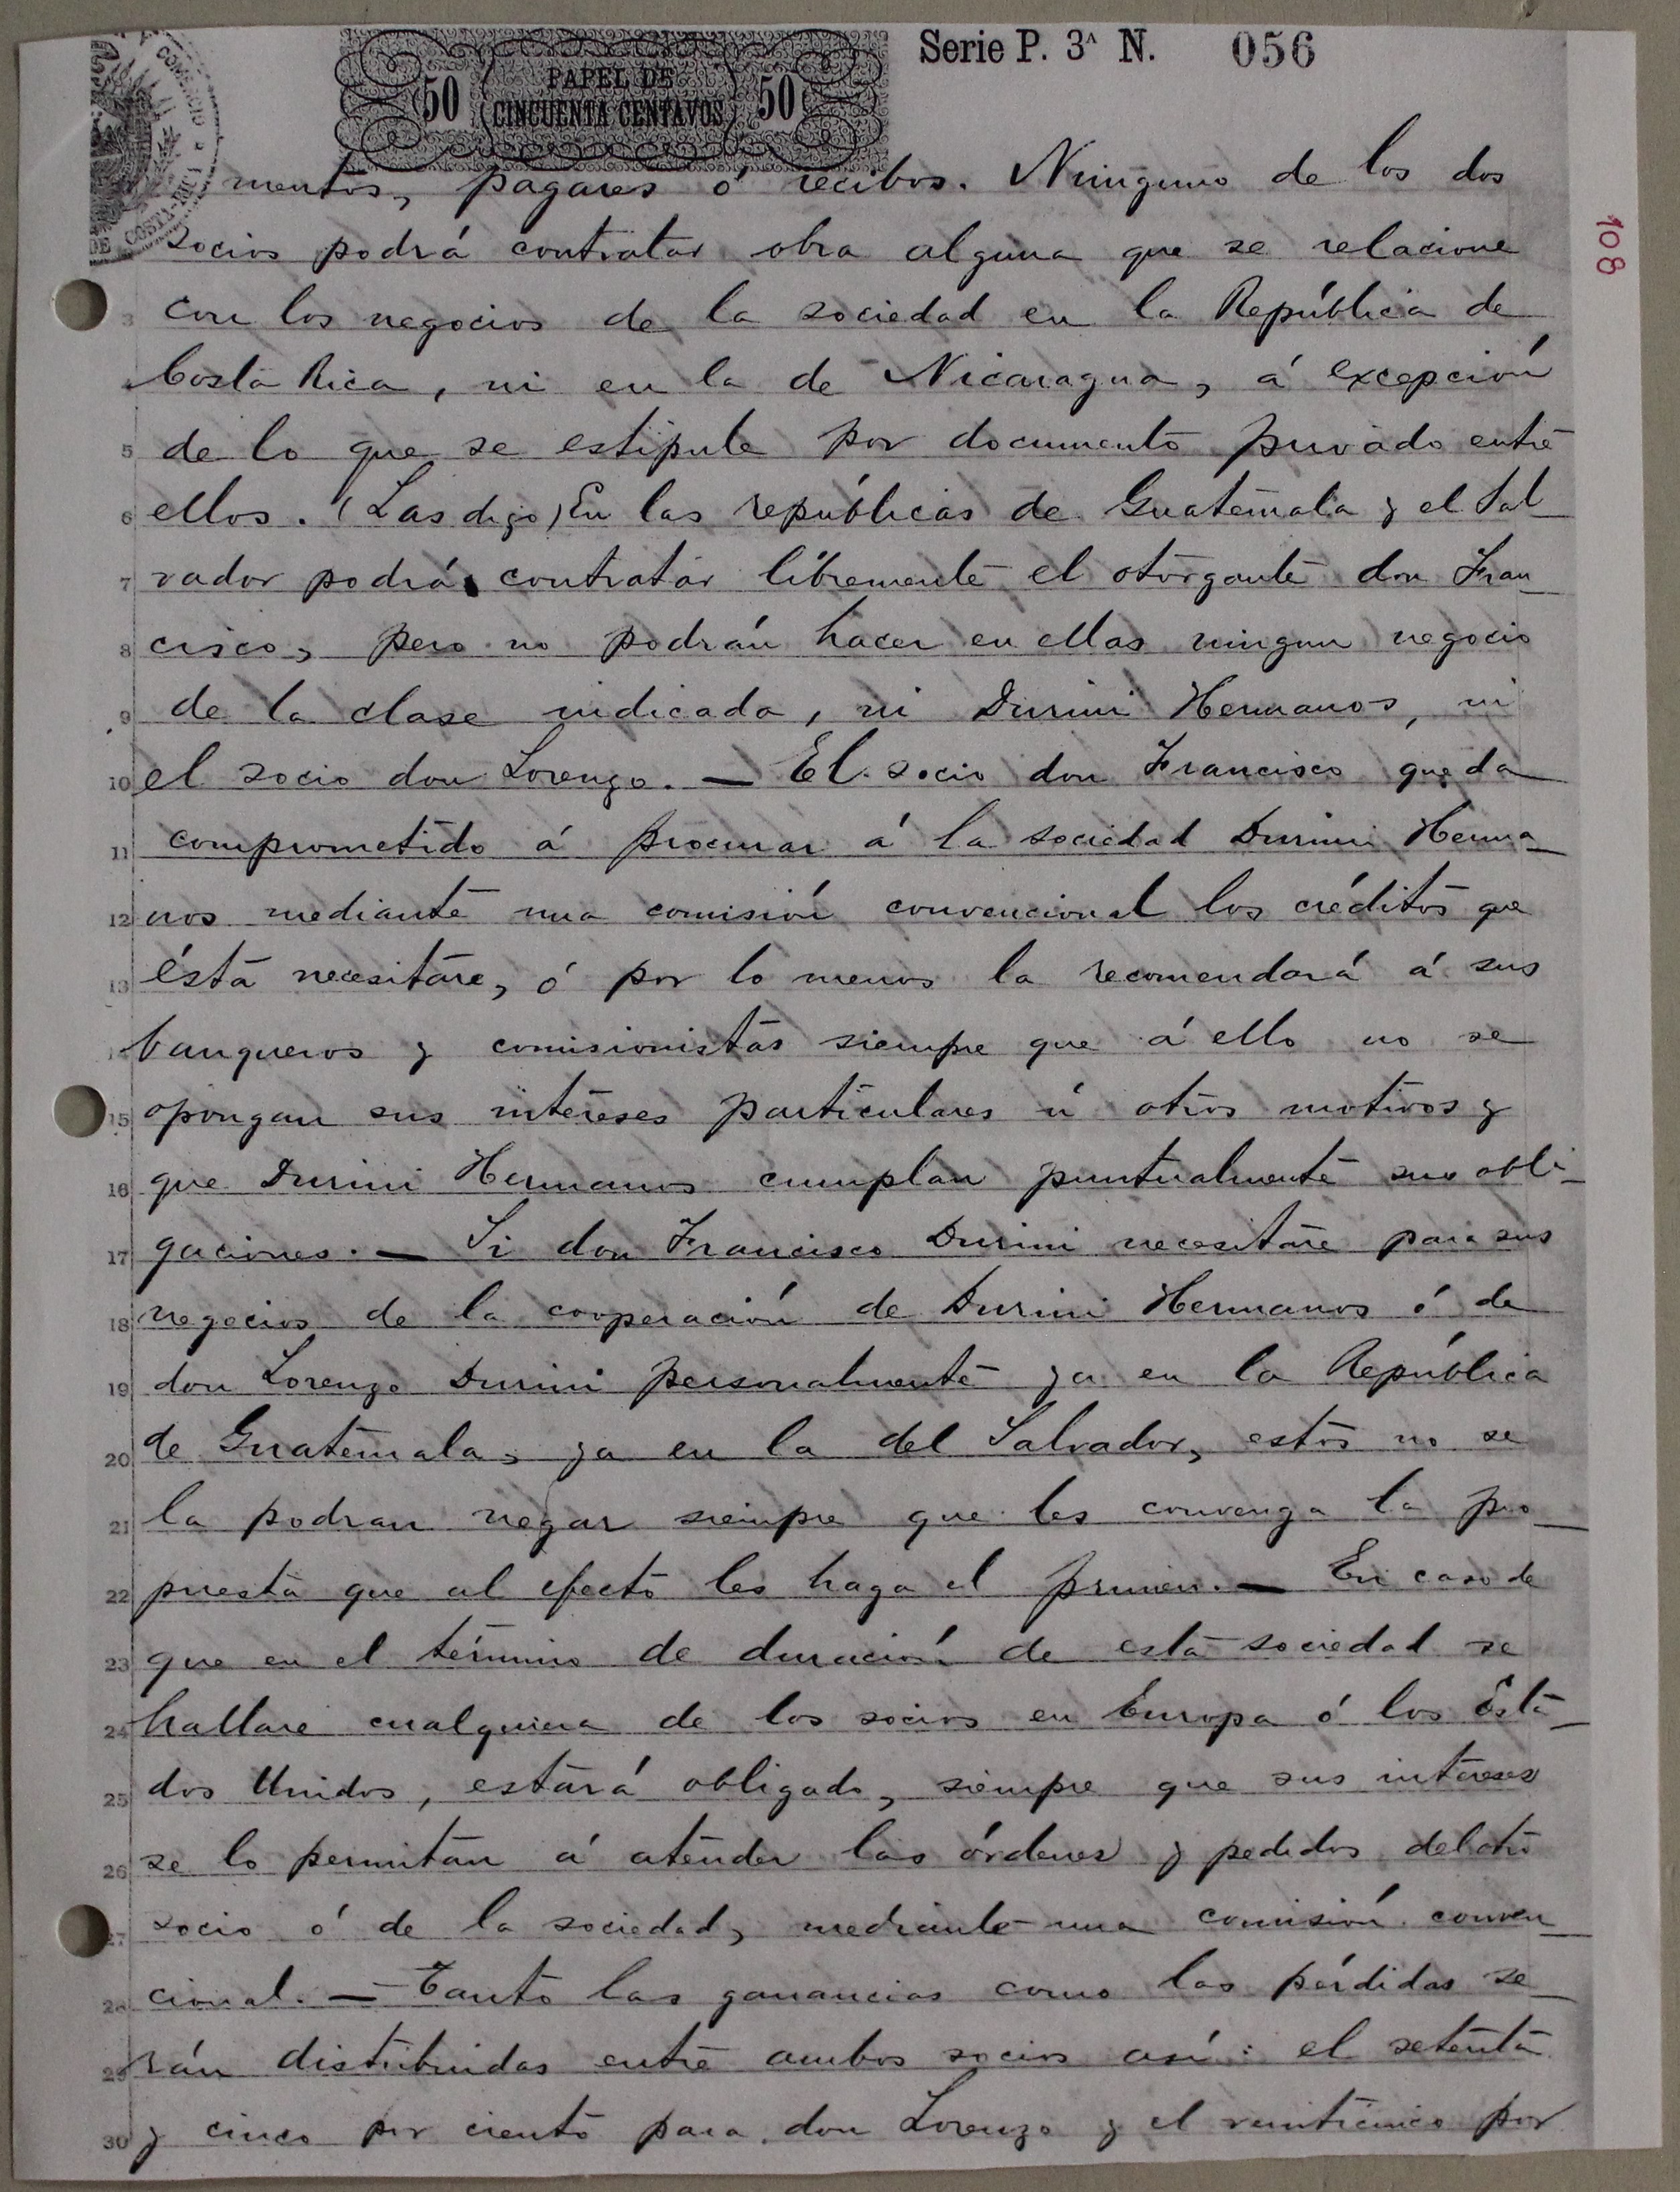 Serie P. 3ᴬ N. 056
PAPEL DE
50 CINCUENTA CENTAVOS 50
108
mentos, pagares ó recibos. Ninguno de los dos
socios podrá contratar obra alguna que se relacione
3 con los negocios de la sociedad en la República de
Costa Rica, ni en la de Nicaragua, á excepción
5 de lo que se estipule por documento privado entre
6 ellos. (Las digo) En las repúblicas de Guatemala y el Sal
7 vador podrá contratar libremente el otorgante don Fran_
8 cisco, pero no podrán hacer en ellas ningun negocio
9 de la clase indicada, ni Durini Hermanos, ni
10 el socio don Lorenzo. — El socio don Francisco queda
11 comprometido á procurar á la sociedad Durini Herma_
12 nos mediante una comisión convencional los créditos que
13 ésta necesitare, ó por lo menos la recomendará á sus
banqueros y comisionistas siempre que á ello no se
15 opongan sus intereses particulares ú otros motivos y
16 que Durini Hermanos cumplan puntualmente sus obli_
17 gaciones. — Si don Francisco Durini necesitare para sus
18 negocios de la cooperación de Durini Hermanos ó de
19 don Lorenzo Durini personalmente ya en la República
20 de Guatemala, ya en la del Salvador, estos no se
21 la podran negar siempre que les convenga la pro_
22 puesta que al efecto les haga el primero. — En caso de
23 que en el término de duración de esta sociedad se
24 hallare cualquiera de los socios en Europa ó los Esta_
25 dos Unidos, estará obligado, siempre que sus intereses
26 se lo permitan á atender las órdenes y pedidos del otro
27 socio ó de la sociedad, mediante una comisión conven_
28 cional. — Tanto las ganancias como las pérdidas se_
29 rán distribuidas entre ambos socios así: el setenta
30 y cinco por ciento para don Lorenzo y el veinticinco por